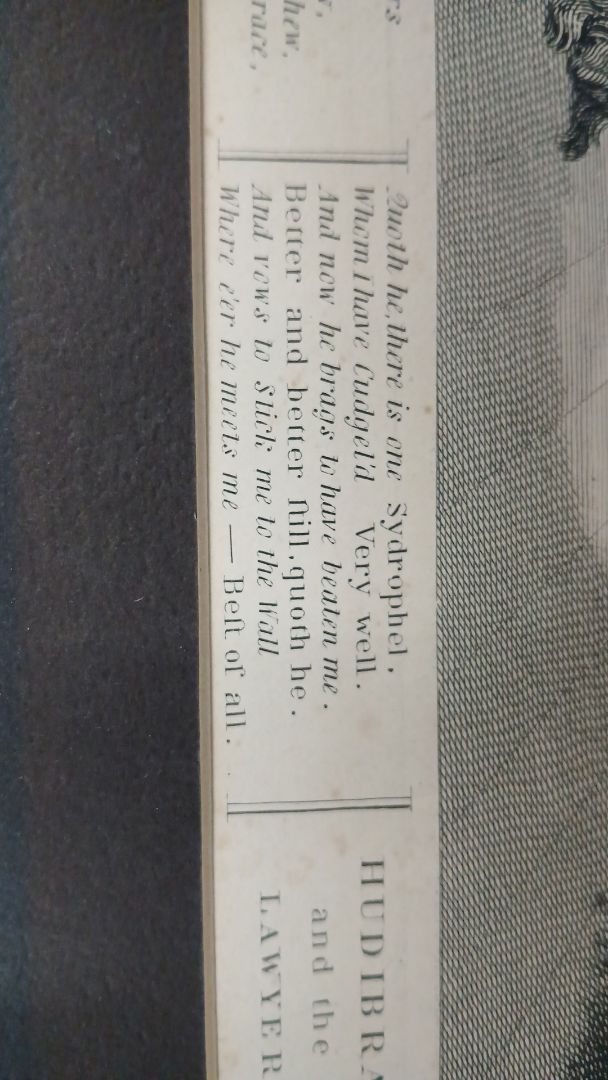 rs
hew.
race,
Quoth he, there is one Sydrophel,
Whom I have Cudgel'd Very well.
And now he brags to have beaten me.
Better and better ſtill, quoth he.
And vows to Stick me to the Wall
Where e'er he meets me — Beſt of all.
HUDIBRA
and the
LAWYER